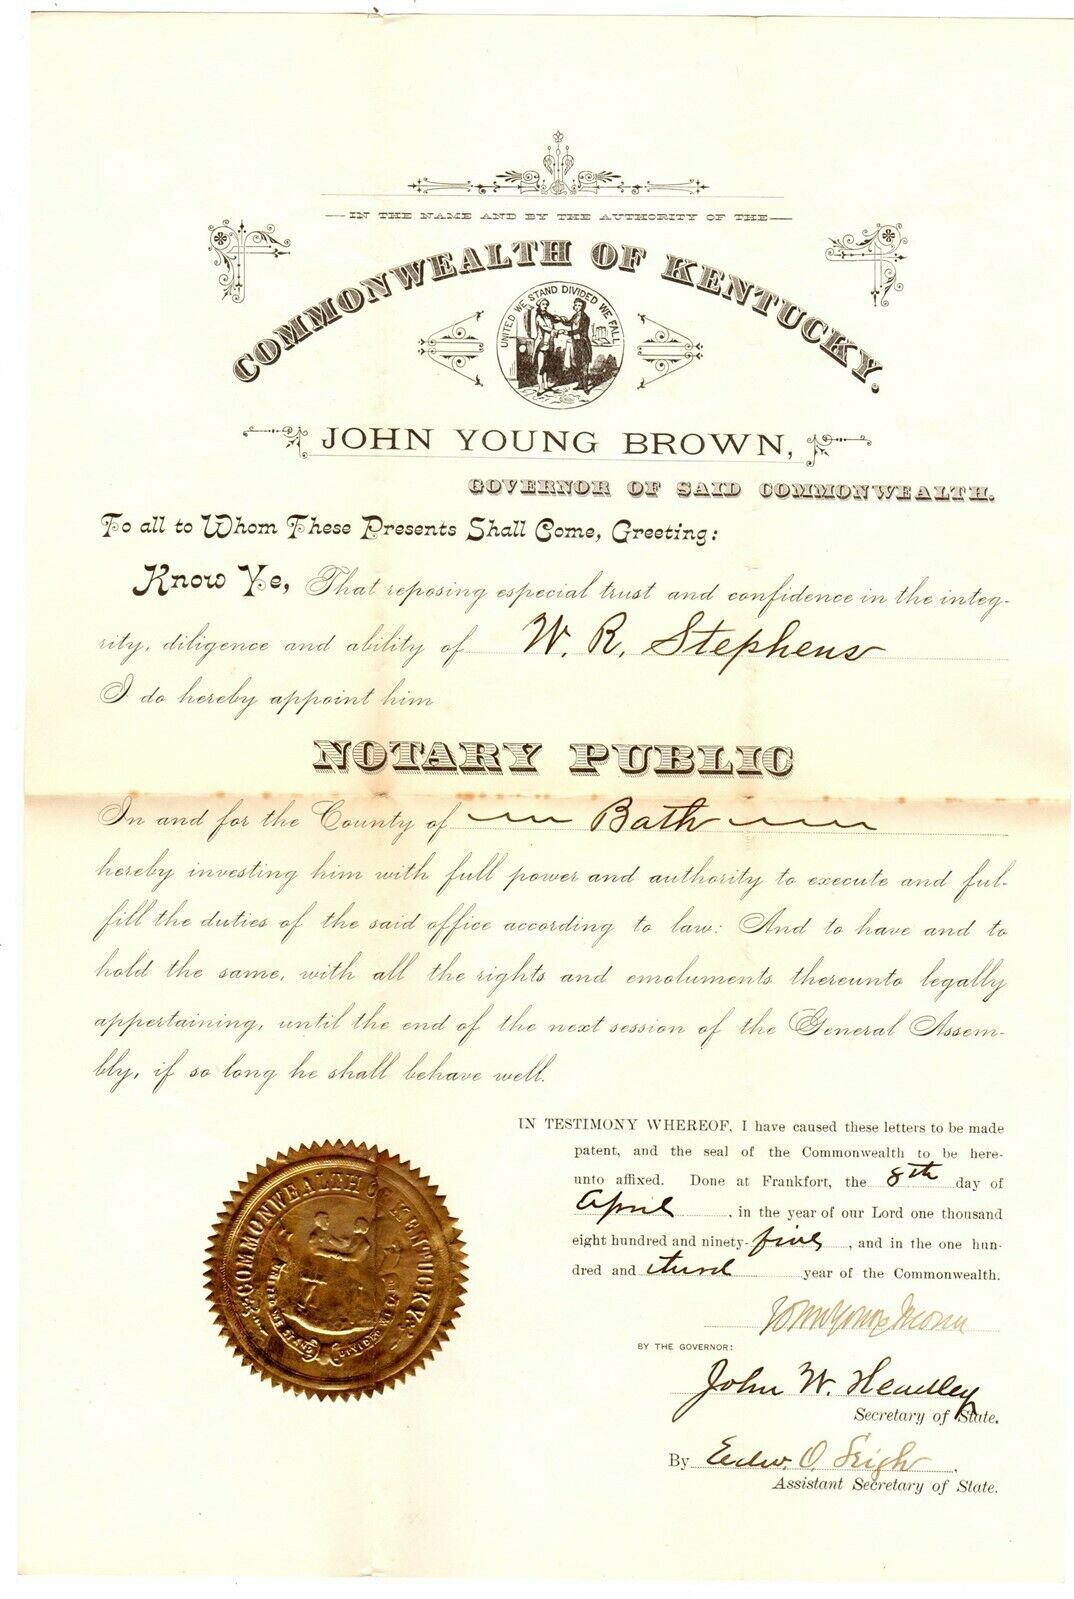 IN THE NAME AND BY THE AUTHORITY OF THE
COMMONWEALTH OF KENTUCKY.
UNITED WE STAND DIVIDED WE FALL
JOHN YOUNG BROWN,
GOVERNOR OF SAID COMMONWEALTH.
To all to Whom These Presents Shall Come, Greeting:
Know Ye, That reposing especial trust and confidence in the integ-
rity, diligence and ability of W. R. Stephens
I do hereby appoint him
NOTARY PUBLIC
In and for the County of Bath
hereby investing him with full power and authority to execute and ful-
fill the duties of the said office according to law: And to have and to
hold the same, with all the rights and emoluments thereunto legally
appertaining, until the end of the next session of the General Assem-
bly, if so long he shall behave well.
IN TESTIMONY WHEREOF, I have caused these letters to be made
patent, and the seal of the Commonwealth to be here-
unto affixed. Done at Frankfort, the 8th day of
April, in the year of our Lord one thousand
eight hundred and ninety-five, and in the one hun-
dred and third year of the Commonwealth.
John Young Brown
BY THE GOVERNOR:
John W. Headley
Secretary of State.
By Edw. O. Leigh,
Assistant Secretary of State.
COMMONWEALTH OF KENTUCKY
UNITED WE STAND DIVIDED WE FALL